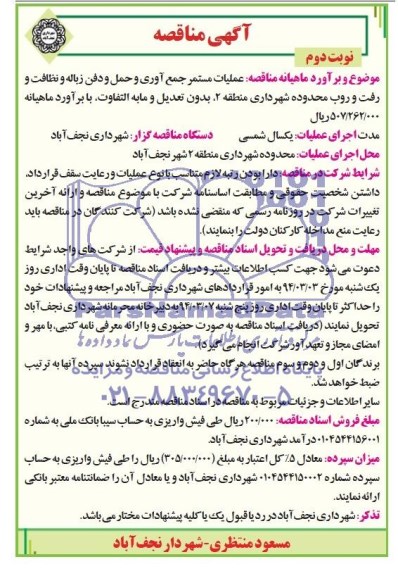 آگهی مناقصه
نوبت دوم
موضوع و برآورد ماهیانه مناقصه: عملیات مستمر جمع آوری و حمل و دفن زباله و نظافت و
رفت و روب محدوده شهرداری منطقه ۲، بدون تعدیل و مابه التفاوت، با برآورد ماهیانه
۵۰۷/۲۶۲/۰۰۰ریال
مدت اجرای عملیات: یکسال شمسی دستگاه مناقصه گزار: شهرداری نجف آباد
محل اجرای عملیات: محدوده شهرداری منطقه ۲ شهر نجف آباد
شرایط شرکت در مناقصه: دارا بودن رتبه لازم متناسب با نوع عملیات و رعایت سقف قرارداد،
داشتن شخصیت حقوقی و مطابقت اساسنامه شرکت با موضوع مناقصه و ارائه آخرین
تغییرات شرکت در روزنامه رسمی که منقضی نشده باشد (شرکت کنندگان در مناقصه باید
رعایت منع مداخله کارکنان دولت را بنمایند).
مهلت و محل دریافت و تحویل اسناد مناقصه و پیشنهاد قیمت: از شرکت های واجد شرایط
دعوت می شود جهت کسب اطلاعات بیشتر و دریافت اسناد مناقصه تا پایان وقت اداری روز
یک شنبه مورخ ۹۴/۰۳/۰۳ به امور قراردادهای شهرداری نجف آباد مراجعه و پیشنهادات خود
را حداکثر تا پایان وقت اداری روز پنج شنبه ۹۴/۰۳/۰۷ به دبیرخانه محرمانه شهرداری نجف آباد
تحویل نمایند (دریافت اسناد مناقصه به صورت حضوری و با ارائه معرفی نامه کتبی، با مهر و
امضای مجاز و تعهدآور شرکت انجام می گیرد)
برندگان اول و دوم و سوم مناقصه هرگاه حاضر به انعقاد قرارداد نشوند سپرده آنها به ترتیب
ضبط خواهد شد.
سایر اطلاعات و جزئیات مربوط به مناقصه در اسناد مناقصه مندرج است.
مبلغ فروش اسناد مناقصه: ۲۰۰/۰۰۰ ریال طی فیش واریزی به حساب سیبا بانک ملی به شماره
۰۱۰۴۵۴۴۱۵۶۰۰۱درآمد شهرداری نجف آباد.
میزان سپرده: معادل ۵٪ کل اعتبار به مبلغ (۳۰۵/۰۰۰/۰۰۰) ریال را طی فیش واریزی به حساب
سپرده شماره ۰۱۰۴۵۴۴۱۵۰۰۰۲ شهرداری نجف آباد و یا معادل آن را ضمانتنامه معتبر بانکی
ارائه نمایند.
تذکر: شهرداری نجف آباد در رد یا قبول یک یا کلیه پیشنهادات مختار می باشد.
مسعود منتظری-شهردار نجف آباد
ParsNamadData
پایگاه اطلاع رسانی مناقصه و مزایده
۰۲۱-۸۸۳۴۹۶۷۰-۵